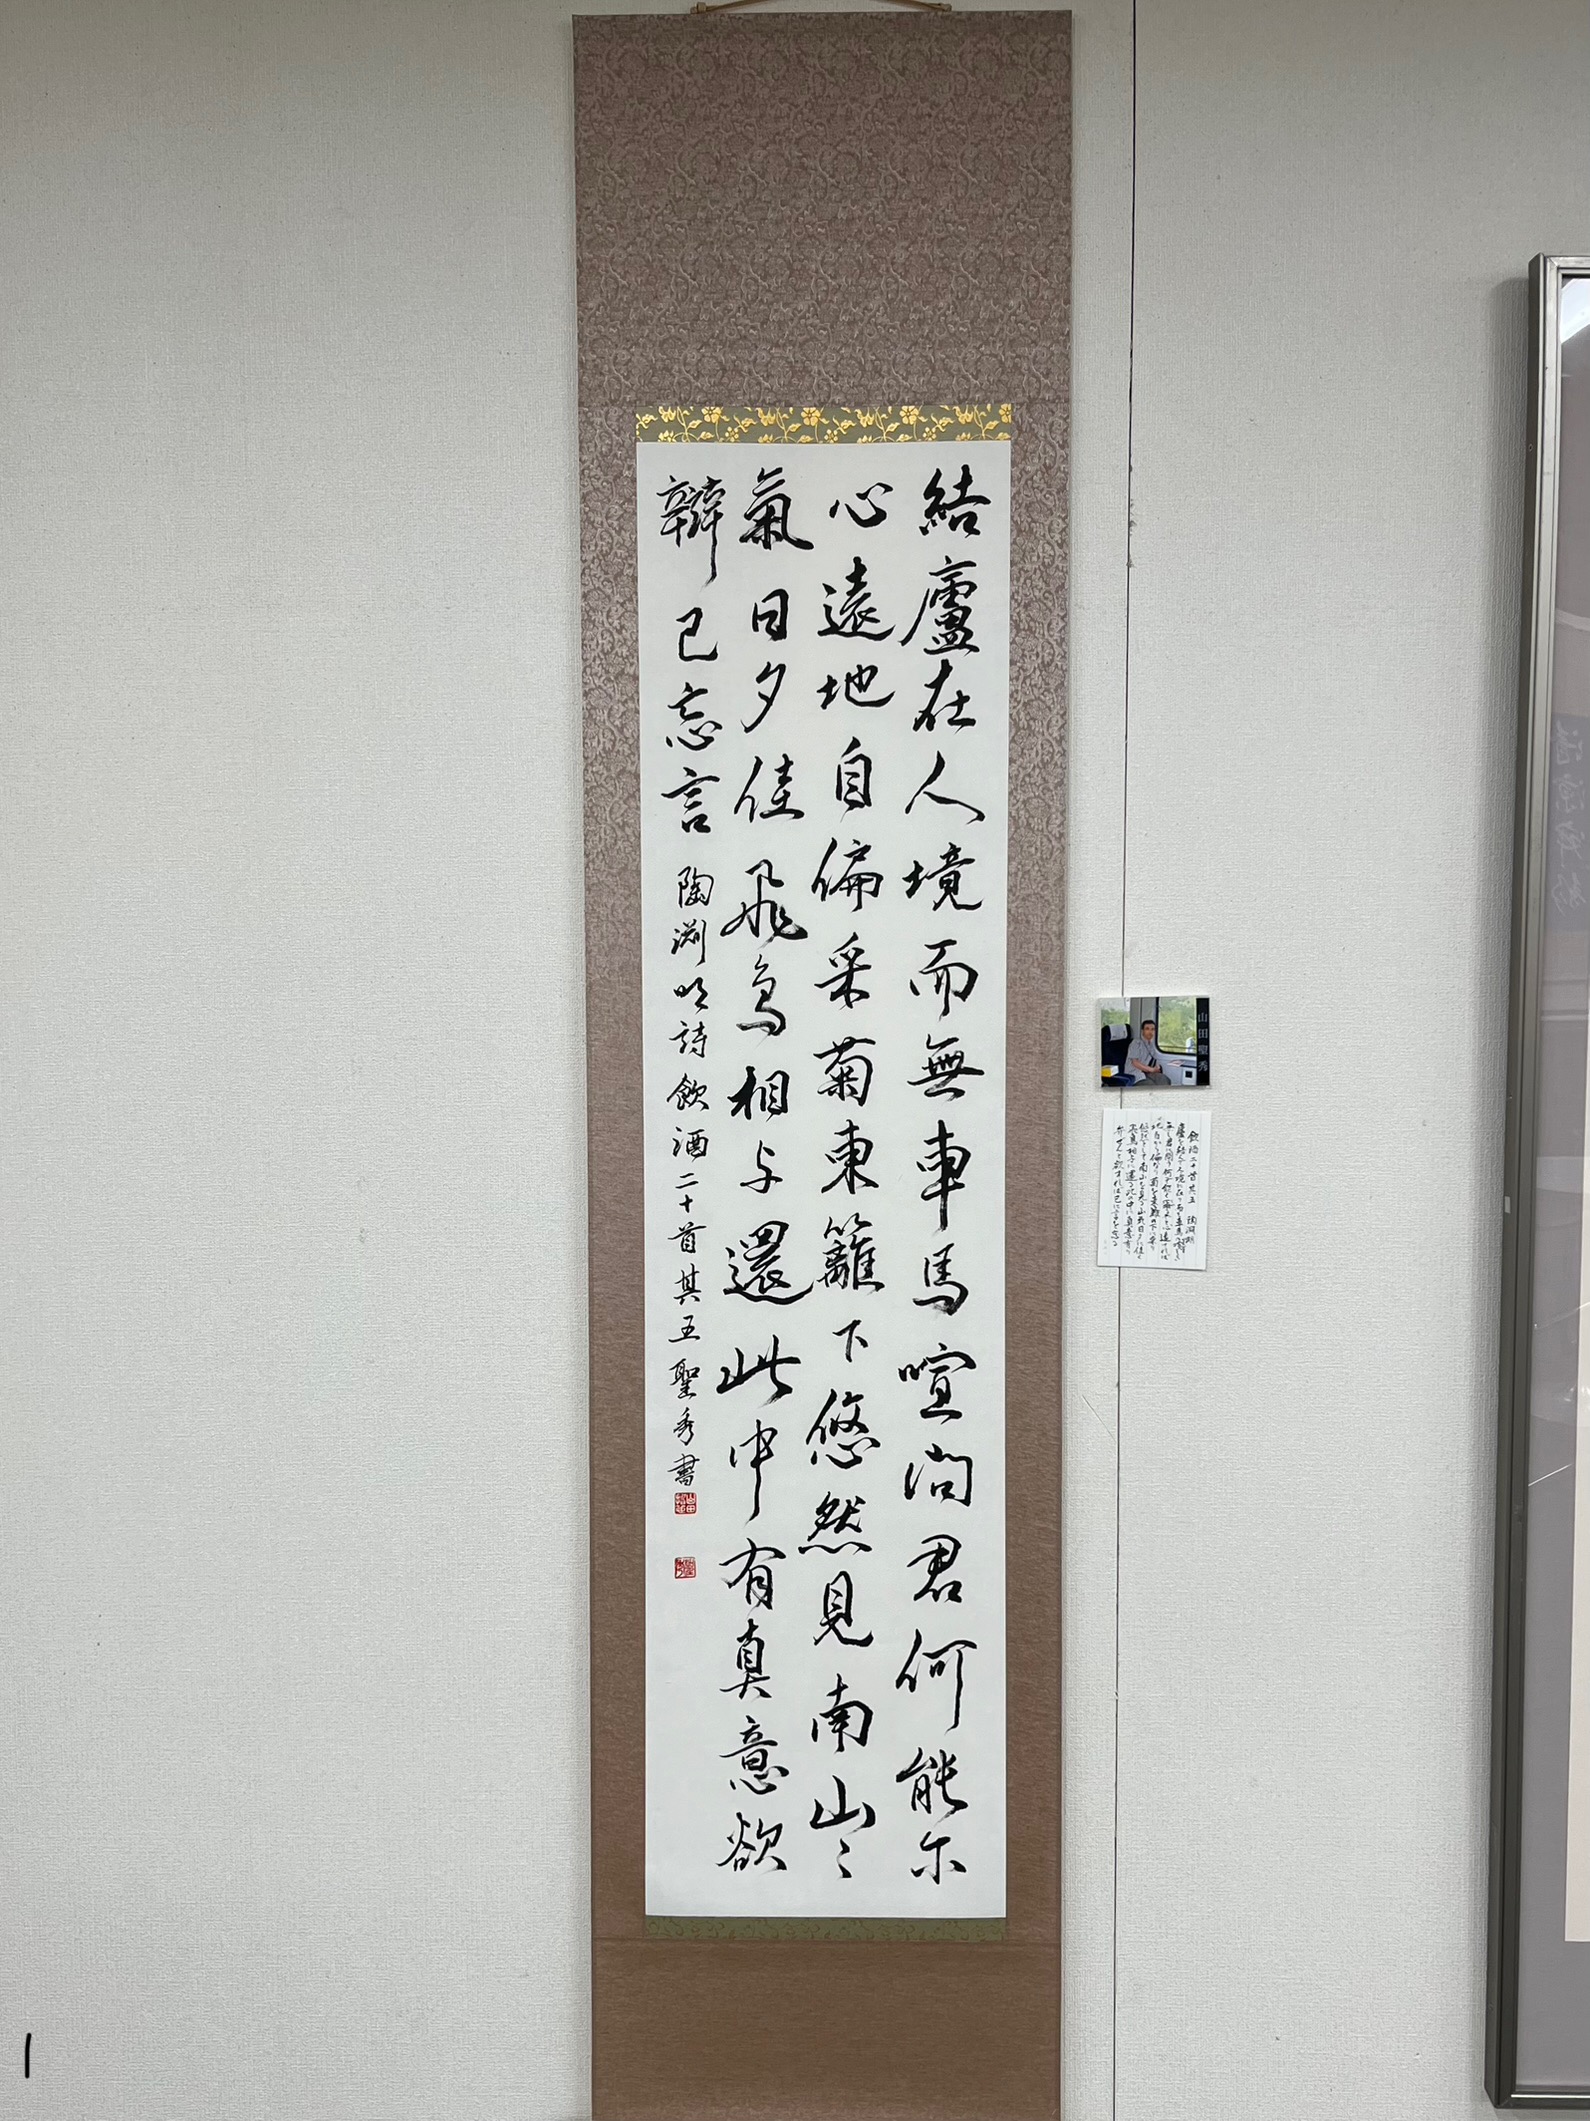 結廬在人境而無車馬喧問君何能尓
心遠地自偏采菊東籬下悠然見南山々
氣日夕佳飛鳥相与還此中有真意欲
辯已忘言 陶淵明詩飲酒二十首其五 聖秀書
山田聖秀
飲酒二十首其五 陶淵明